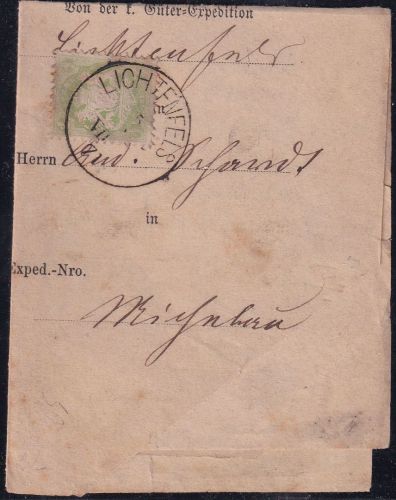 Von der k. Güter-Expedition
Lichtenfels
LICHTENFELS
VII
Herrn Rud. Schardt
in
Exped.-Nro.
Michelau